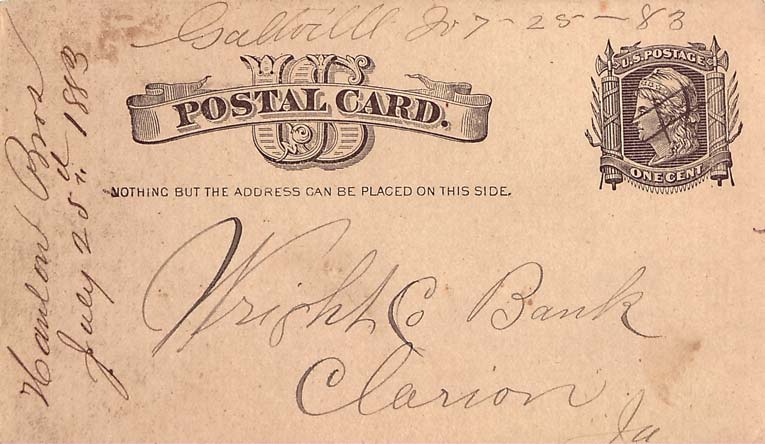 Galtville Io 7-25-83
US
POSTAL CARD.
U.S. POSTAGE
ONE CENT
NOTHING BUT THE ADDRESS CAN BE PLACED ON THIS SIDE.
Hanlon Bros
July 25th 1883
Wright Co Bank
Clarion
Ia